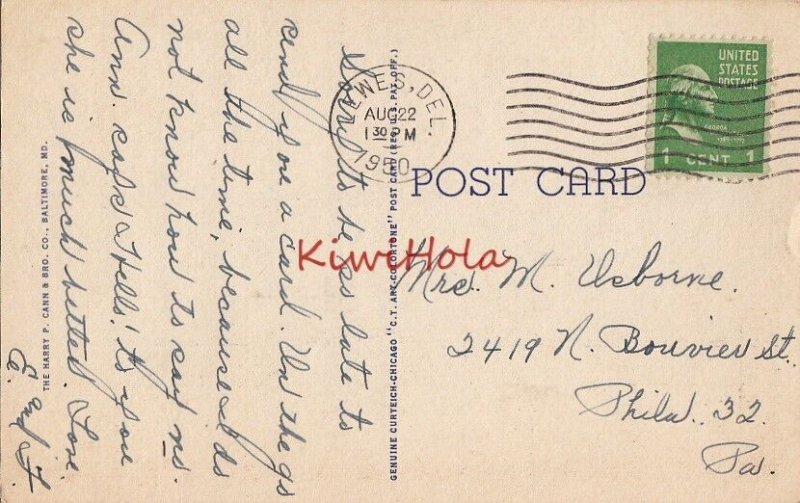 THE HARRY P. CANN & BRO. CO., BALTIMORE, MD.
Sorry to be so late to
send you a card. On the go
all the time, because I do
not know how to say no.
Ann. says "Hello" to you
she is much better. Love.
E. and F.
GENUINE CURTEICH-CHICAGO "C.T. ART-COLORTONE" POST CARD (REG. U.S. PAT. OFF.)
LEWES, DEL.
AUG 22
1 30 PM
1950
UNITED
STATES
POSTAGE
1 CENT 1
POST CARD
KiwiHola
Mrs. M. Usborne.
2419 N. Bouvier St.
Phila. 32.
Pa.